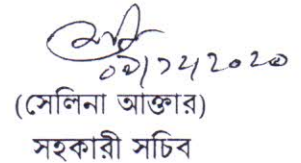 ০৯/১২/২০২০
(সেলিনা আক্তার)
সহকারী সচিব